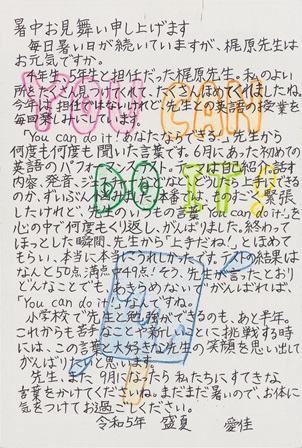 暑中お見舞い申し上げます
毎日暑い日が続いていますが、梶原先生は
お元気ですか。
4年生、5年生と担任だった梶原先生。私のよい
所をたくさん見つけてくれて、たくさんほめてくれましたね。
今年は、担任ではないけれど、先生との英語の授業を
毎回楽しみにしています。
「You can do it! あなたならできる!」先生から
何度も何度も聞いた言葉です。6月にあった初めての
英語のパフォーマンステスト。テーマは自己紹介。話す
内容、発音、ジェスチャーなどなど、どうしたら上手にできる
のか、ずいぶんなやみました。本番では、ものすごく緊張
したけれど、先生のいつもの言葉「You can do it!」を
心の中で何度もくり返し、がんばりました。終わって
ほっとした瞬間、先生から「上手だね!」とほめて
もらい、本当に本当にうれしかったです。テストの結果は
なんと50点満点で49点!そう、先生が言ったとおり
どんなことでも、あきらめないでがんばれば、
「You can do it!」なんですね。
小学校で先生と勉強ができるのも、あと半年。
これからも苦手なことや新しいことに挑戦する時
には、この言葉と大好きな先生の笑顔を思い出して
がんばりたいと思います。
先生、また9月になったら私たちにすてきな
言葉をかけてくださいね。まだまだ暑いので、お体に
気をつけてお過ごしください。
令和5年 盛夏 愛佳
YOU CAN
DO IT!